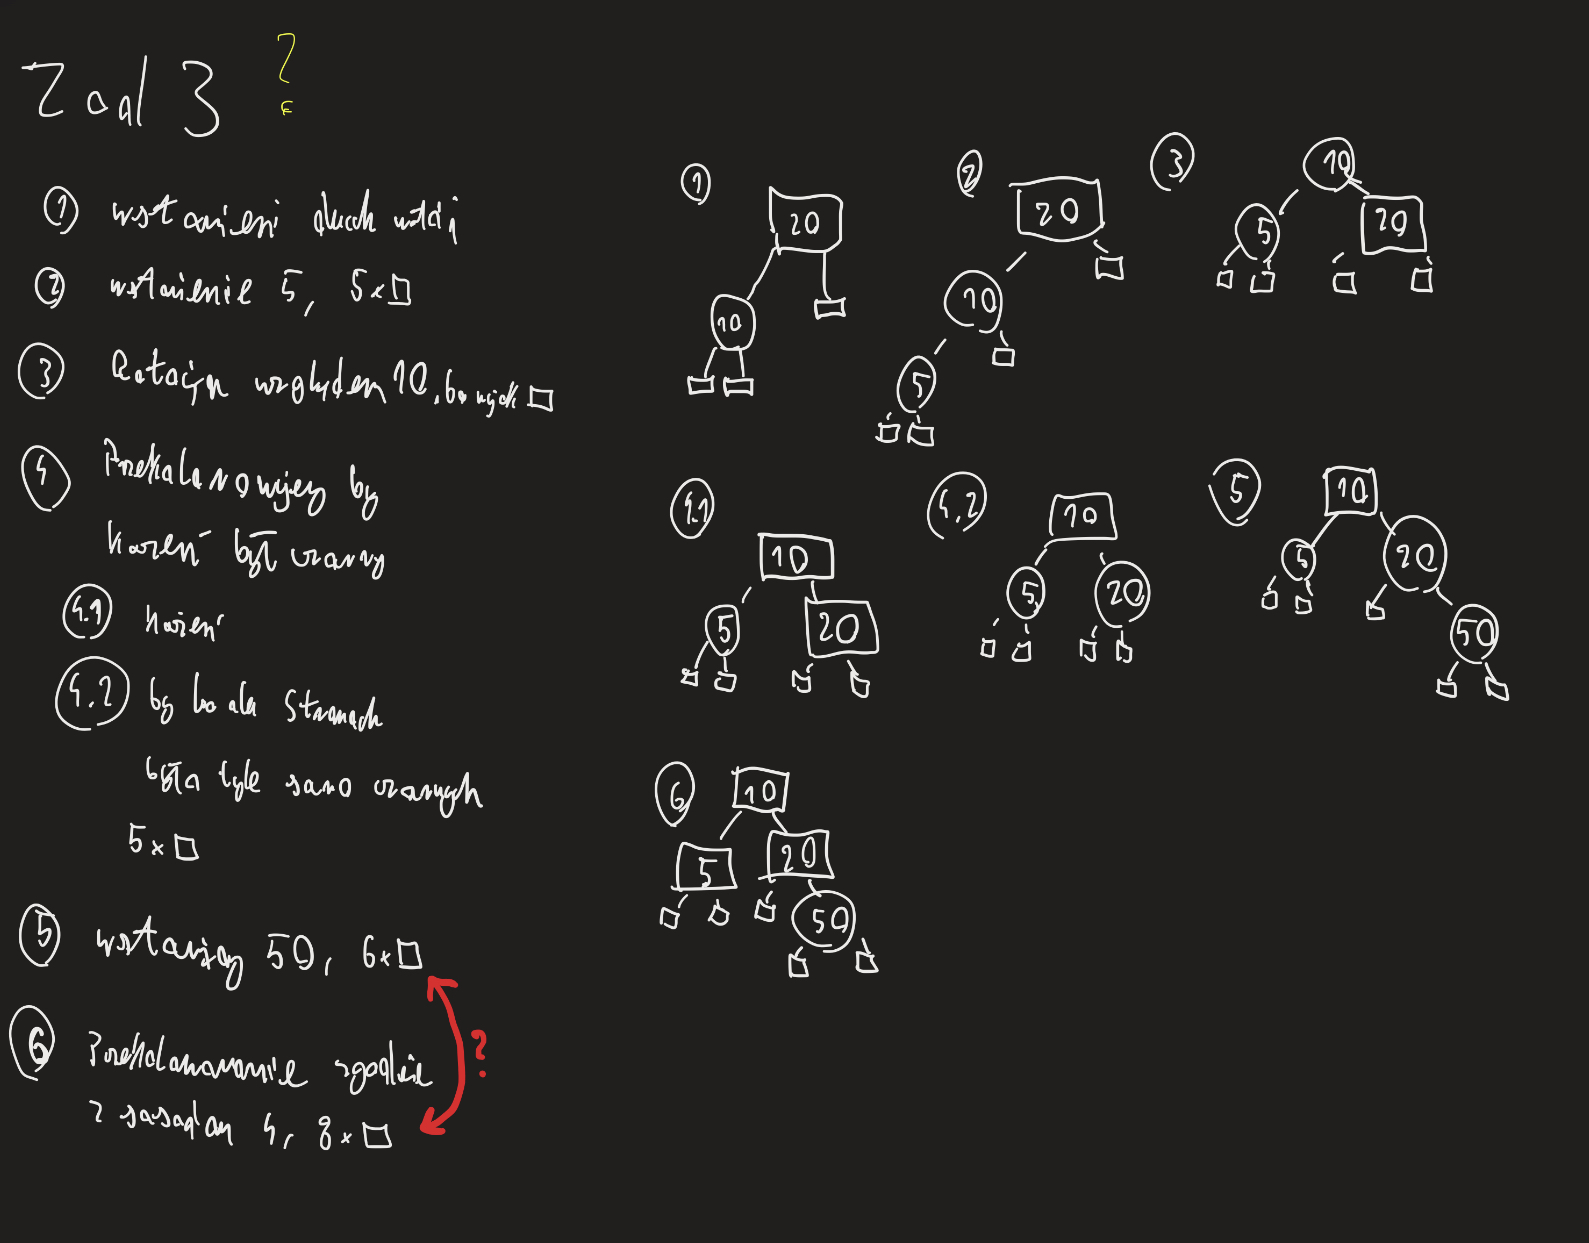 Zad 3 ?
① wstawieni dwóch
② wstawienie 5, 5x□
③ Rotacja względem 10, □
④ Przekolorowujemy by
korzeń był czarny
4.1 korzeń
4.2 by po obu stronach
była tyle samo czarnych
5x□
⑤ wstawiamy 50, 6x□
⑥ Przekolorowanie zgodnie
z zasadam 4, 8x□
?
①
20
10
②
20
10
5
③
10
5
20
4.1
10
5
20
4.2
10
5
20
⑤
10
5
20
50
⑥
10
5
20
50